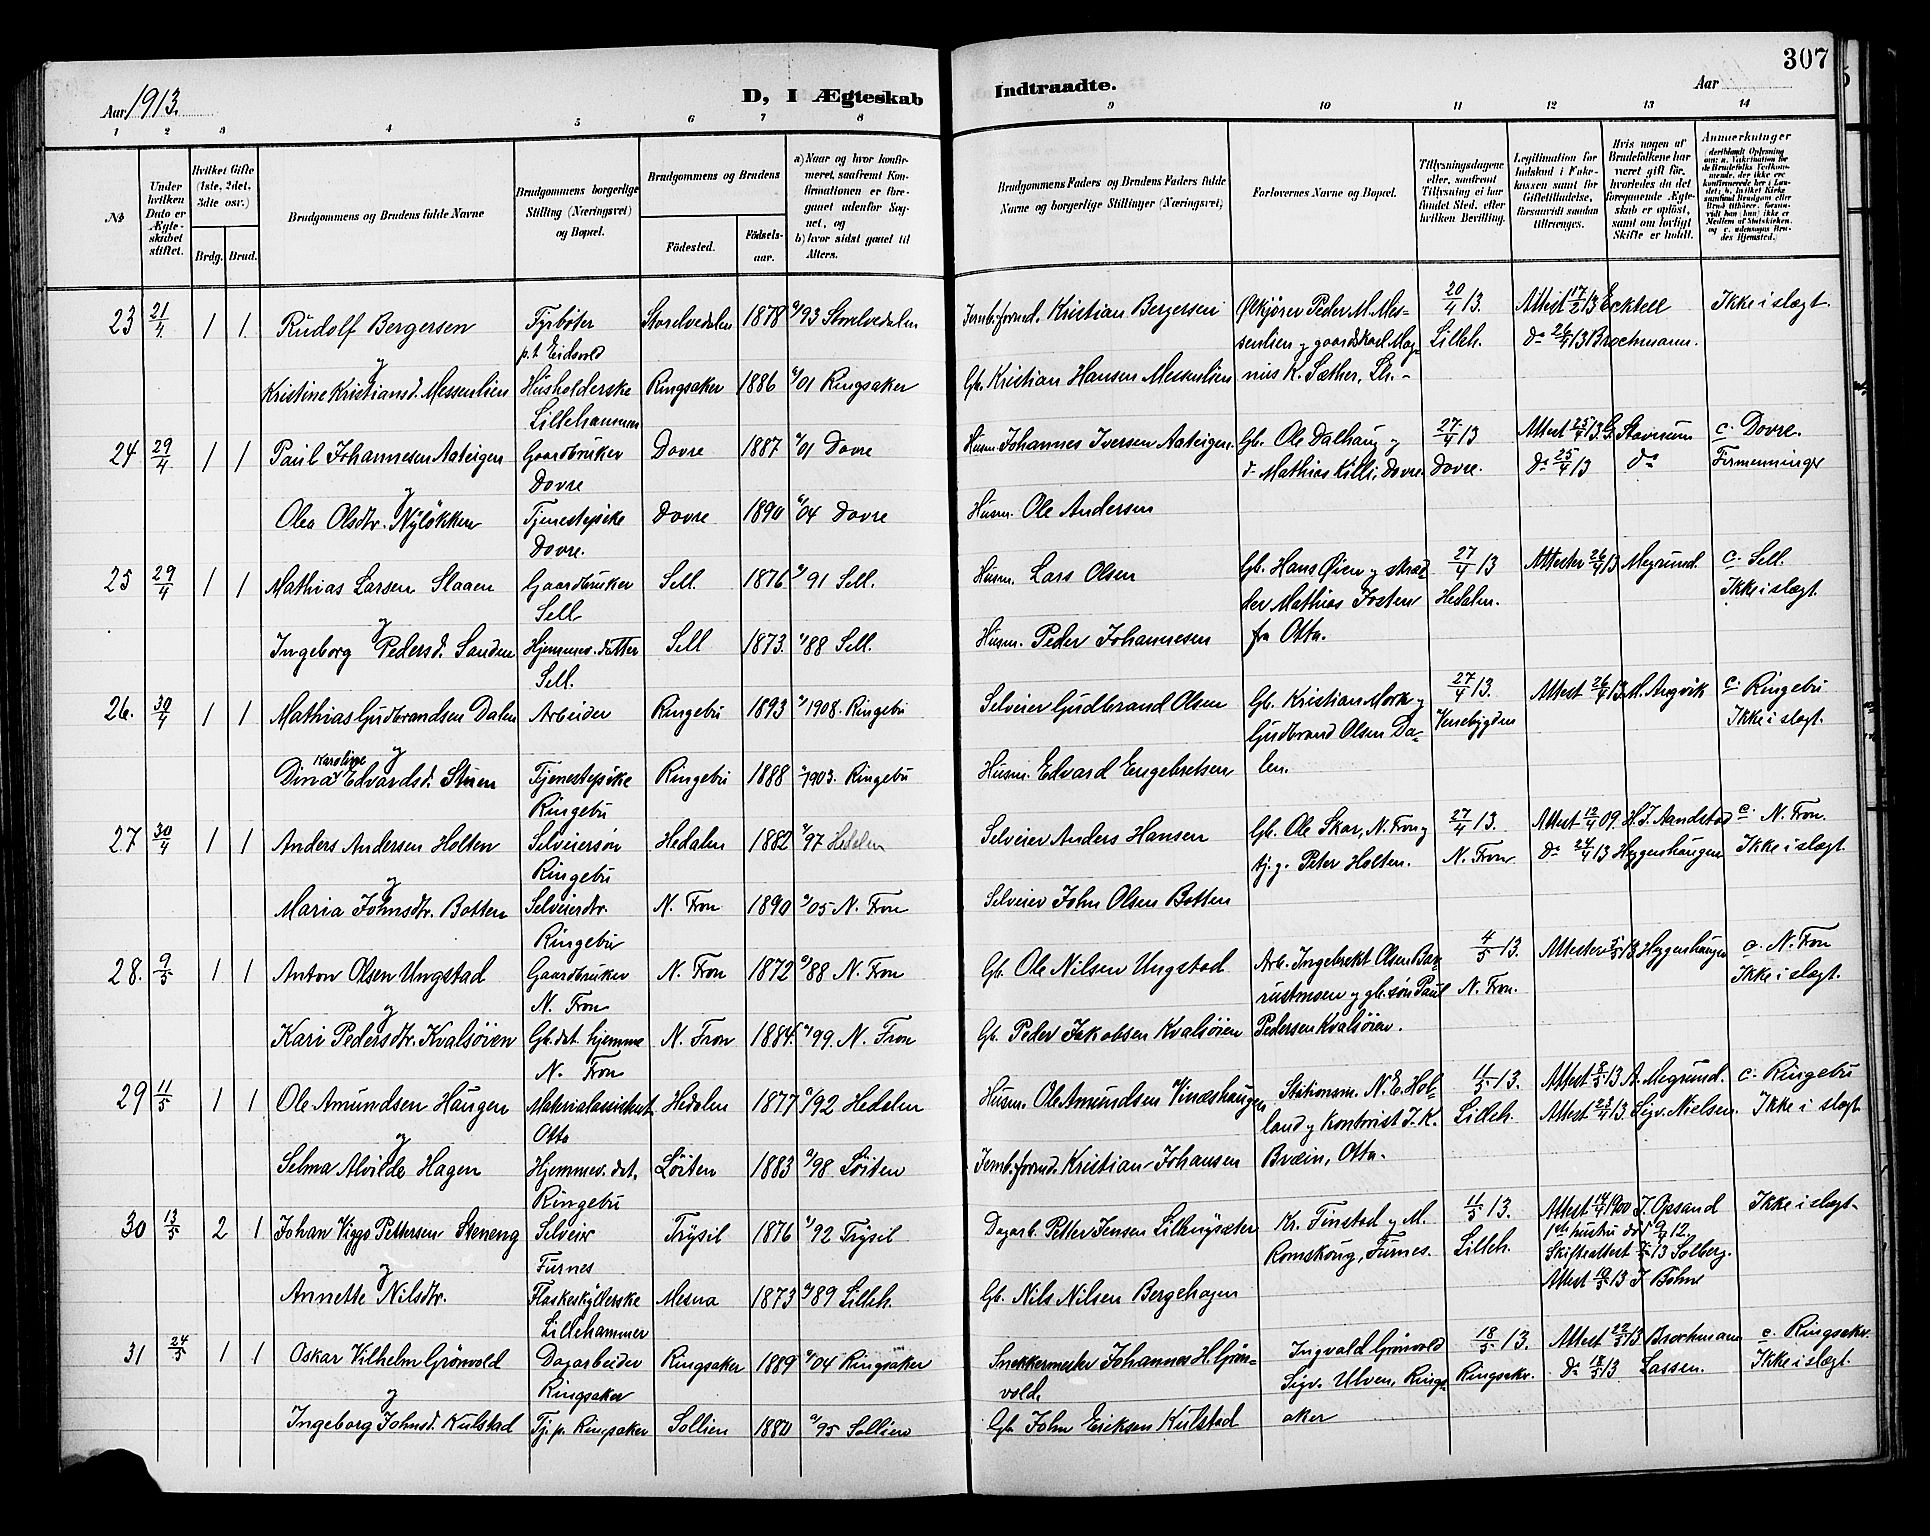 307
Aar 1913.
D, I Ægteskab Indtraadte.
Aar
1 2 3 4 5 6 7 8 9 10 11 12 13 14
№
Under hvilken Dato er Ægteskabet stiftet.
Hvilket Gifte (1ste, 2det, 3die osv.)
Brdg. Brud.
Brudgommens og Brudens fulde Navne
Brudgommens borgerlige Stilling (Næringsvei) og Bopæl.
Brudgommens og Brudens
Födested.
Födselsaar.
a) Naar og hvor konfirmeret, saafremt Konfirmationen er foregaaet udenfor Sognet, og
b) hvor sidst gaaet til Alters.
Brudgommens Faders og Brudens Faders fulde Navne og borgerlige Stillinger (Næringsvei)
Forlovernes Navne og Bopæl.
Tillysningsdagene eller, saafremt Tillysning ei har fundet Sted, efter hvilken Bevilling.
Legitimation for Indskud i Enkekassen samt for Giftetilladelse, forsaavidt saadan tiltrænges.
Hvis nogen af Brudefolkene har været gift før, hvorledes da det foregaaende Ægteskab er opløst, samt om lovligt Skifte er holdt.
Anmerkninger
23 21/4 1 1 Rudolf Bergersen Fyrbøter Storelvedalen 1878 93 Storelvedalen Jernb.formd. Kristian Bergersen Ølkjører Peder M. Mes- 20/4 13. Attest 17/2 13 Ecktell Ikke i slægt.
og p.t. Eidsvold senlien og gaardskarl Mag- Lilleh. do 26/4 13 Brochmann.
Kristine Kristiansd. Messenlien Husholderske Ringsaker 1886 01 Ringsaker Gb. Kristian Hansen Messenlien nus K. Sæther, Lh.
Lillehammer
24 29/4 1 1 Paul Johannesen Aateigen Gaardbruker Dovre 1887 01 Dovre Husm. Johannes Iversen Aateigen Gb. Ole Dalhaug og 27/4 13 Attest 25/4 13 G. Stavrum c. Dovre.
og Dovre d. Mathias Killi, Dovre Dovre. do 25/4 13 do Firmenninger
Olea Olsdtr. Nyløkken Tjenestepike Dovre 1890 04 Dovre Husm. Ole Andersen
Dovre.
25 29/4 1 1 Mathias Larsen Slaaen Gaardbruker Sell. 1876 91 Sell. Husm. Lars Olsen Gb. Hans Øien og skræd- 27/4 13 Attester 26/4 13 Megrund. c. Sell.
og Sell der Mathias Josten Hedalen. Ikke i slægt.
Ingeborg Pedersd. Sanden Hjemmev. datter Sell 1873. 88 Sell. Husm. Peder Johannesen fra Otta.
Sell.
26. 30/4 1 1 Mathias Gudbrandsen Dalen Arbeider Ringebu 1893 1908. Ringebu Selveier Gudbrand Olsen Gb. Kristian Mork og 27/4 13. Attest 26/4 13 M. Angvik c. Ringebu
og Gudbrand Olsen Da- Venebygden Ikke i slægt.
Dina Karoline Edvardsd. Stuen Tjenestepike Ringebu 1888 1903. Ringebu Husm. Edvard Engebretsen len.
Ringebu
27 30/4 1 1 Anders Andersen Holten Selveiersøn Hedalen 1882 97 Hedalen Selveier Anders Hansen Gb. Ole Skar, N. Fron og 27/4 13. Attest 12/4 09. H. J. Aandstad c. N. Fron.
og Ringebu tj.g. Peter Holten. N. Fron do 24/4 13 Heggenhaugen Ikke i slægt.
Maria Johnsdtr. Botten Selveierdtr. N. Fron 1890 05 N. Fron Selveier John Olsen Botten
Ringebu
28. 9/5 1 1 Anton Olsen Ungstad Gaardbruker N. Fron 1872 88 N. Fron Gb. Ole Nilsen Ungstad Arb. Ingebrekt Olsen Bae- 4/5 13. Attester 5/5 13 Heggenhaugen c. N. Fron
og N. Fron rustmoen og gb. søn Paul N. Fron. Ikke i slægt.
Kari Pedersdtr. Kvalsøien Gb. dat. hjemme N. Fron 1884. 99. N. Fron Gb. Peder Jakobsen Kvalsøien Pedersen Kvalsøien.
N. Fron
29 11/5 1 1 Ole Amundsen Haugen Materialassistent Hedalen 1877 92 Hedalen Husm. Ole Amundsen Vindshaugen Stationsm. N. E. Hol- 4/5 13. Attest 8/5 13 A. Megrund. c. Ringebu
og Otta land og kontorist J. K. Lilleh. Attest 23/4 13 Sigv. Nielsen. Ikke i slægt
Selma Alvilde Hagen Hjemmev. dat. Løiten 1883 98. Løiten Jernb.formd. Kristian Johansen Bræin, Otta.
Ringebu
30 13/5 2 1 Johan Viggo Pettersen Steneng Selveier Trysil 1876 92 Trysil Dagarb. Petter Jensen Lillenysæter Kr. Finstad og M. 4/5 13. Attest 14/4 1900 J. Opsand Ikke i slægt.
og Furnes Romskoug, Furnes. Lilleh. 1ste hustru død 9/4 12.
Skifteattest 13 Solberg.
Annette Nilsdtr. Flaskeskyllerske Mesna 1873 89 Lilleh. Gb. Nils Nilsen Bergehagen Attest 10/5 13 J. Bøhne
Lillehammer
31 24/5 1 1 Oskar Vilhelm Grönvold Dagarbeider Ringsaker 1889 04 Ringsaker Snekkermester Johannes H. Grön- Ingvald Grönvold 18/5 13. Attest 22/5 13 Brochmann c. Ringsaker.
og Ringsaker vold. Sigv. Ulven, Rings- Ringsaker. do 18/5 13 Lassen. Ikke i slægt.
Ingeborg Johnsd. Kulstad Tj. p. Ringsaker Sollien 1880 95 Sollien Gb. John Eriksen Kulstad aker